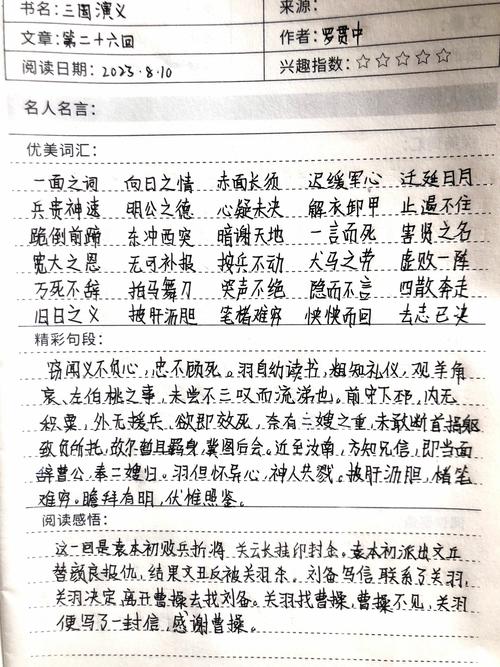 书名：三国演义 来源：
文章：第二十六回 作者：罗贯中
阅读日期：2023.8.10 兴趣指数：☆☆☆☆☆
名人名言：
优美词汇：
一面之词 向日之情 赤面长须 迟缓军心 迁延日月
兵贵神速 明公之德 心疑未决 解衣卸甲 止遏不住
跪倒前蹄 东冲西突 暗谢天地 一言而死 害贤之名
宽大之恩 无可补报 按兵不动 犬马之劳 虚败一阵
万死不辞 拍马舞刀 哭声不绝 隐而不言 四散奔走
旧日之义 披肝沥胆 笔楮难穷 怏怏而回 去志已决
精彩句段：
窃闻义不负心，忠不顾死。羽自幼读书，粗知礼仪，观羊角
哀、左伯桃之事，未尝不三叹而流涕也。前守下邳，内无
积粟，外无援兵，欲即效死，奈有二嫂之重，未敢断首捐躯
致负所托，故尔暂且羁身，冀图后会。近至汝南，方知兄信，即当面
辞曹公，奉二嫂归。羽但怀异心，神人共戮。披肝沥胆，楮笔
难穷。瞻拜有期，伏惟照鉴。
阅读感悟：
这一回是袁本初败兵折将 关云长挂印封金。袁本初派出文丑
替颜良报仇，结果文丑反被关羽杀。刘备写信联系了关羽，
关羽决定离开曹操去找刘备。关羽找曹操，曹操不见，关羽
便写了一封信，感谢曹操。